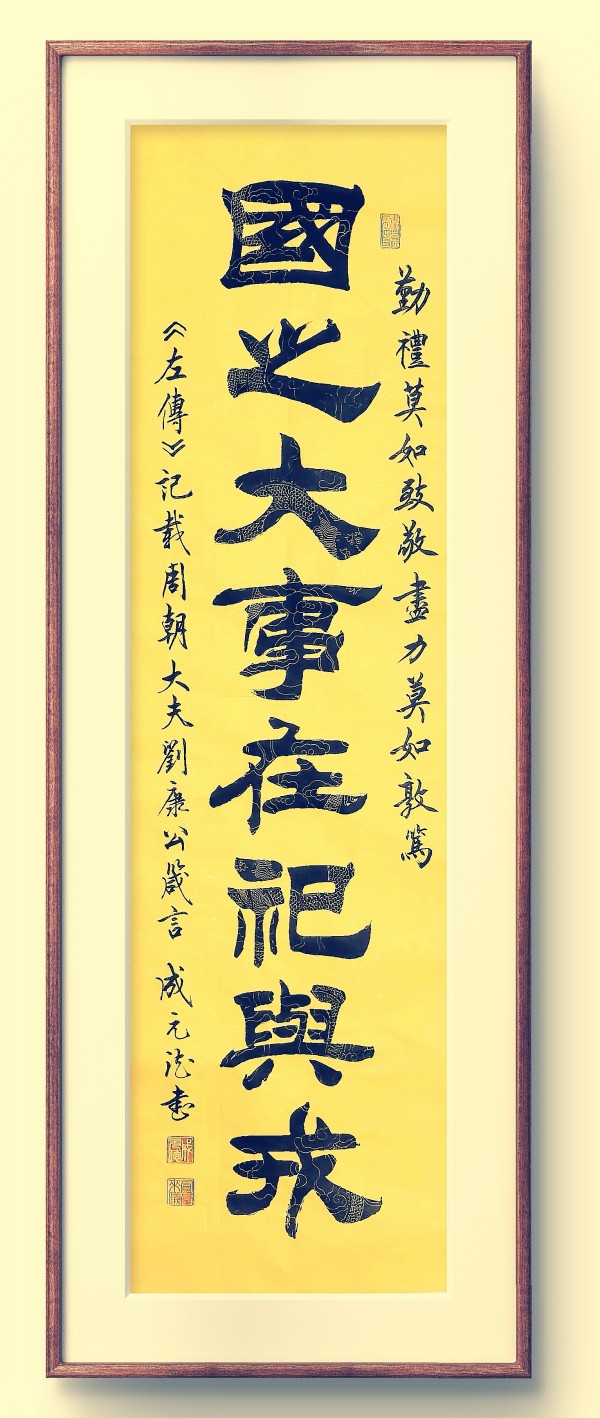 勤禮莫如致敬盡力莫如敦篤
國之大事在祀與戎
《左傳》記載周朝大夫劉康公箴言 成元法書